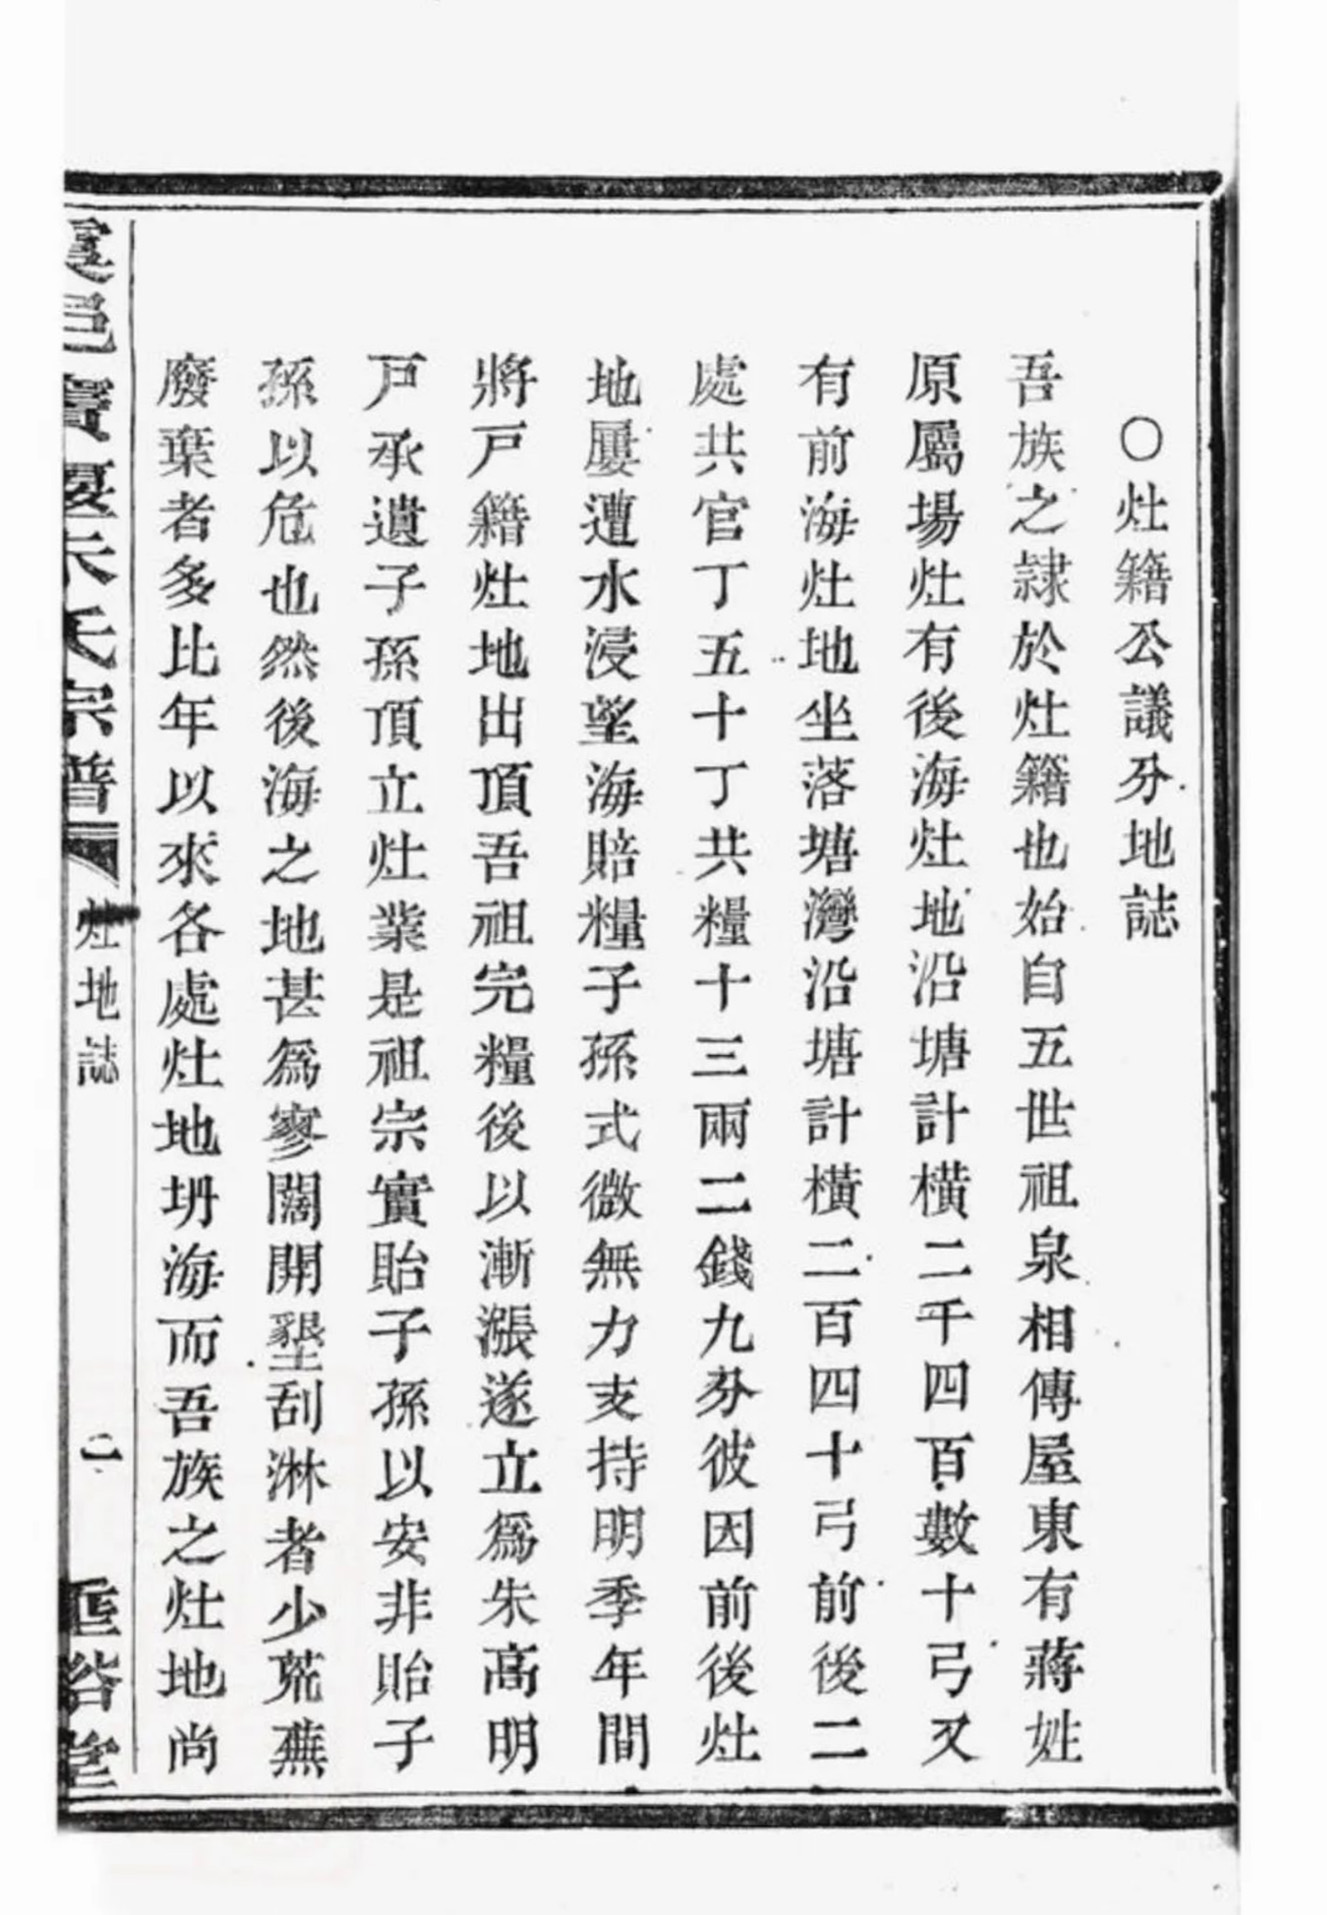 ○灶籍公議分地誌
吾族之隷於灶籍也始自五世祖泉相傳屋東有蔣姓
原屬場灶有後海灶地沿塘計橫二千四百數十弓又
有前海灶地坐落塘灣沿塘計橫二百四十弓前後二
處共官丁五十丁共糧十三兩二錢九分彼因前後灶
地屢遭水浸望海賠糧子孫式微無力支持明季年間
將戸籍灶地出頂吾祖完糧後以漸漲遂立爲朱高明
戸承遺子孫頂立灶業是祖宗實貽子孫以安非貽子
孫以危也然後海之地甚爲寥闊開墾刮淋者少荒蕪
廢棄者多比年以來各處灶地坍海而吾族之灶地尚
虞邑寶堰朱氏宗譜
灶地誌
二
垂裕堂